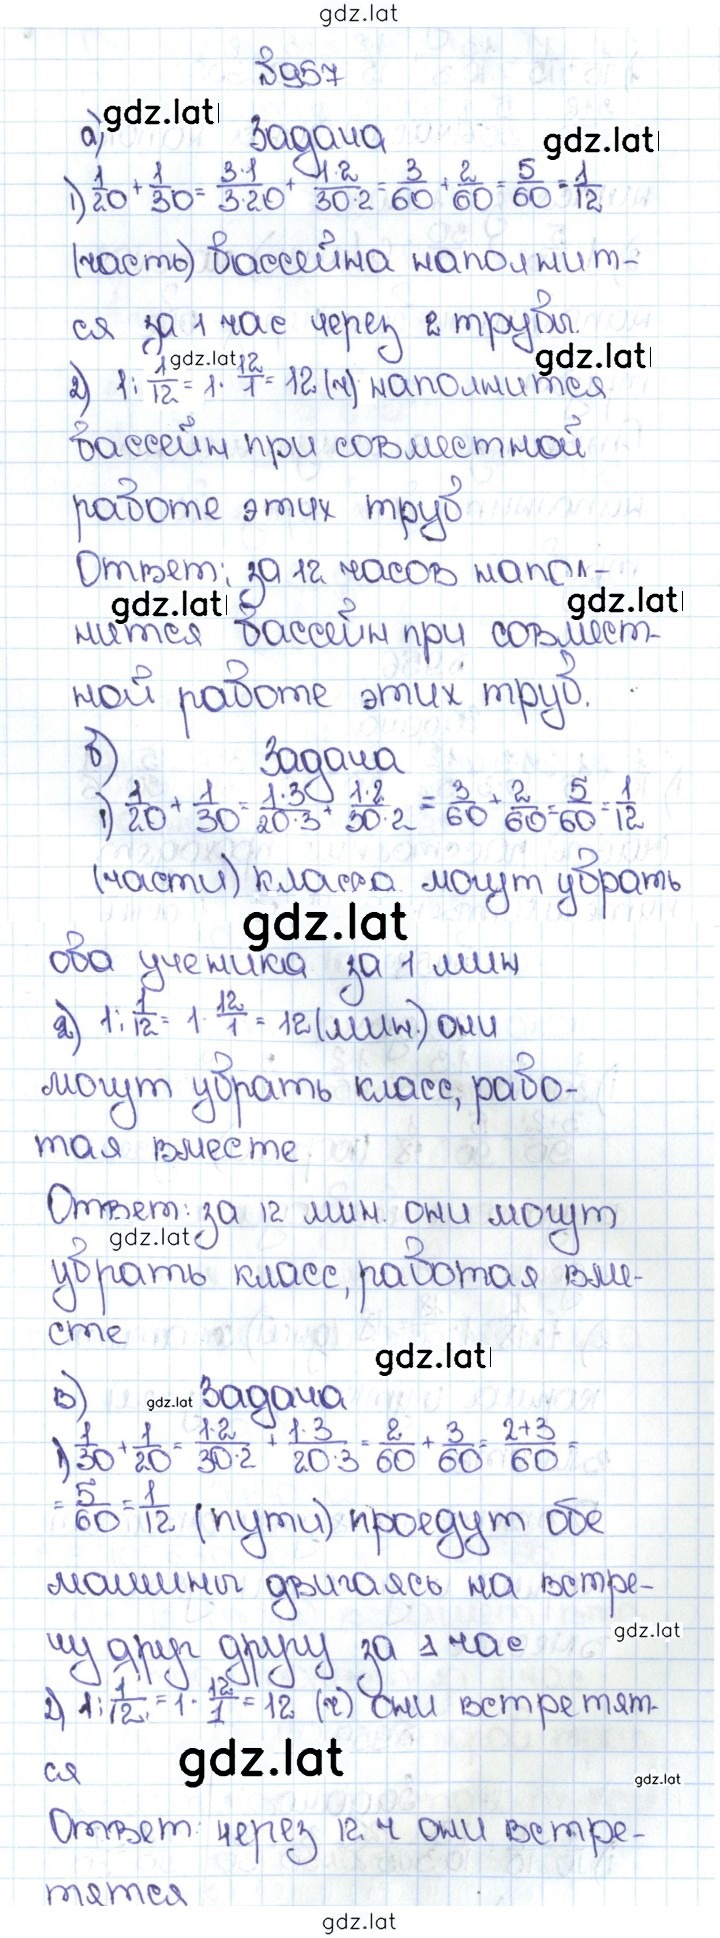 gdz.lat
№957
gdz.lat
а) Задача gdz.lat
1) 1/20 + 1/30 = 3·1/3·20 + 1·2/30·2 = 3/60 + 2/60 = 5/60 = 1/12
(часть) бассейна наполнит-
ся за 1 час через 2 трубы.
gdz.lat gdz.lat
2) 1 : 1/12 = 1 · 12/1 = 12 (ч) наполнится
бассейн при совместной
работе этих труб
Ответ: за 12 часов напол-
gdz.lat gdz.lat
нится бассейн при совмест-
ной работе этих труб.
б) Задача
1) 1/20 + 1/30 = 1·3/20·3 + 1·2/30·2 = 3/60 + 2/60 = 5/60 = 1/12
(части) класса могут убрать
gdz.lat
два ученика за 1 мин
2) 1 : 1/12 = 1 · 12/1 = 12 (мин.) они
могут убрать класс, рабо-
тая вместе
Ответ: за 12 мин. они могут
gdz.lat
убрать класс, работая вме-
сте
gdz.lat
в) gdz.lat Задача
1) 1/30 + 1/20 = 1·2/30·2 + 1·3/20·3 = 2/60 + 3/60 = 2+3/60 =
= 5/60 = 1/12 (пути) проедут обе
машины двигаясь на встре-
gdz.lat
чу друг другу за 1 час
2) 1 : 1/12 = 1 · 12/1 = 12 (ч) они встретят-
ся gdz.lat gdz.lat
Ответ: через 12 ч они встре-
тятся
gdz.lat